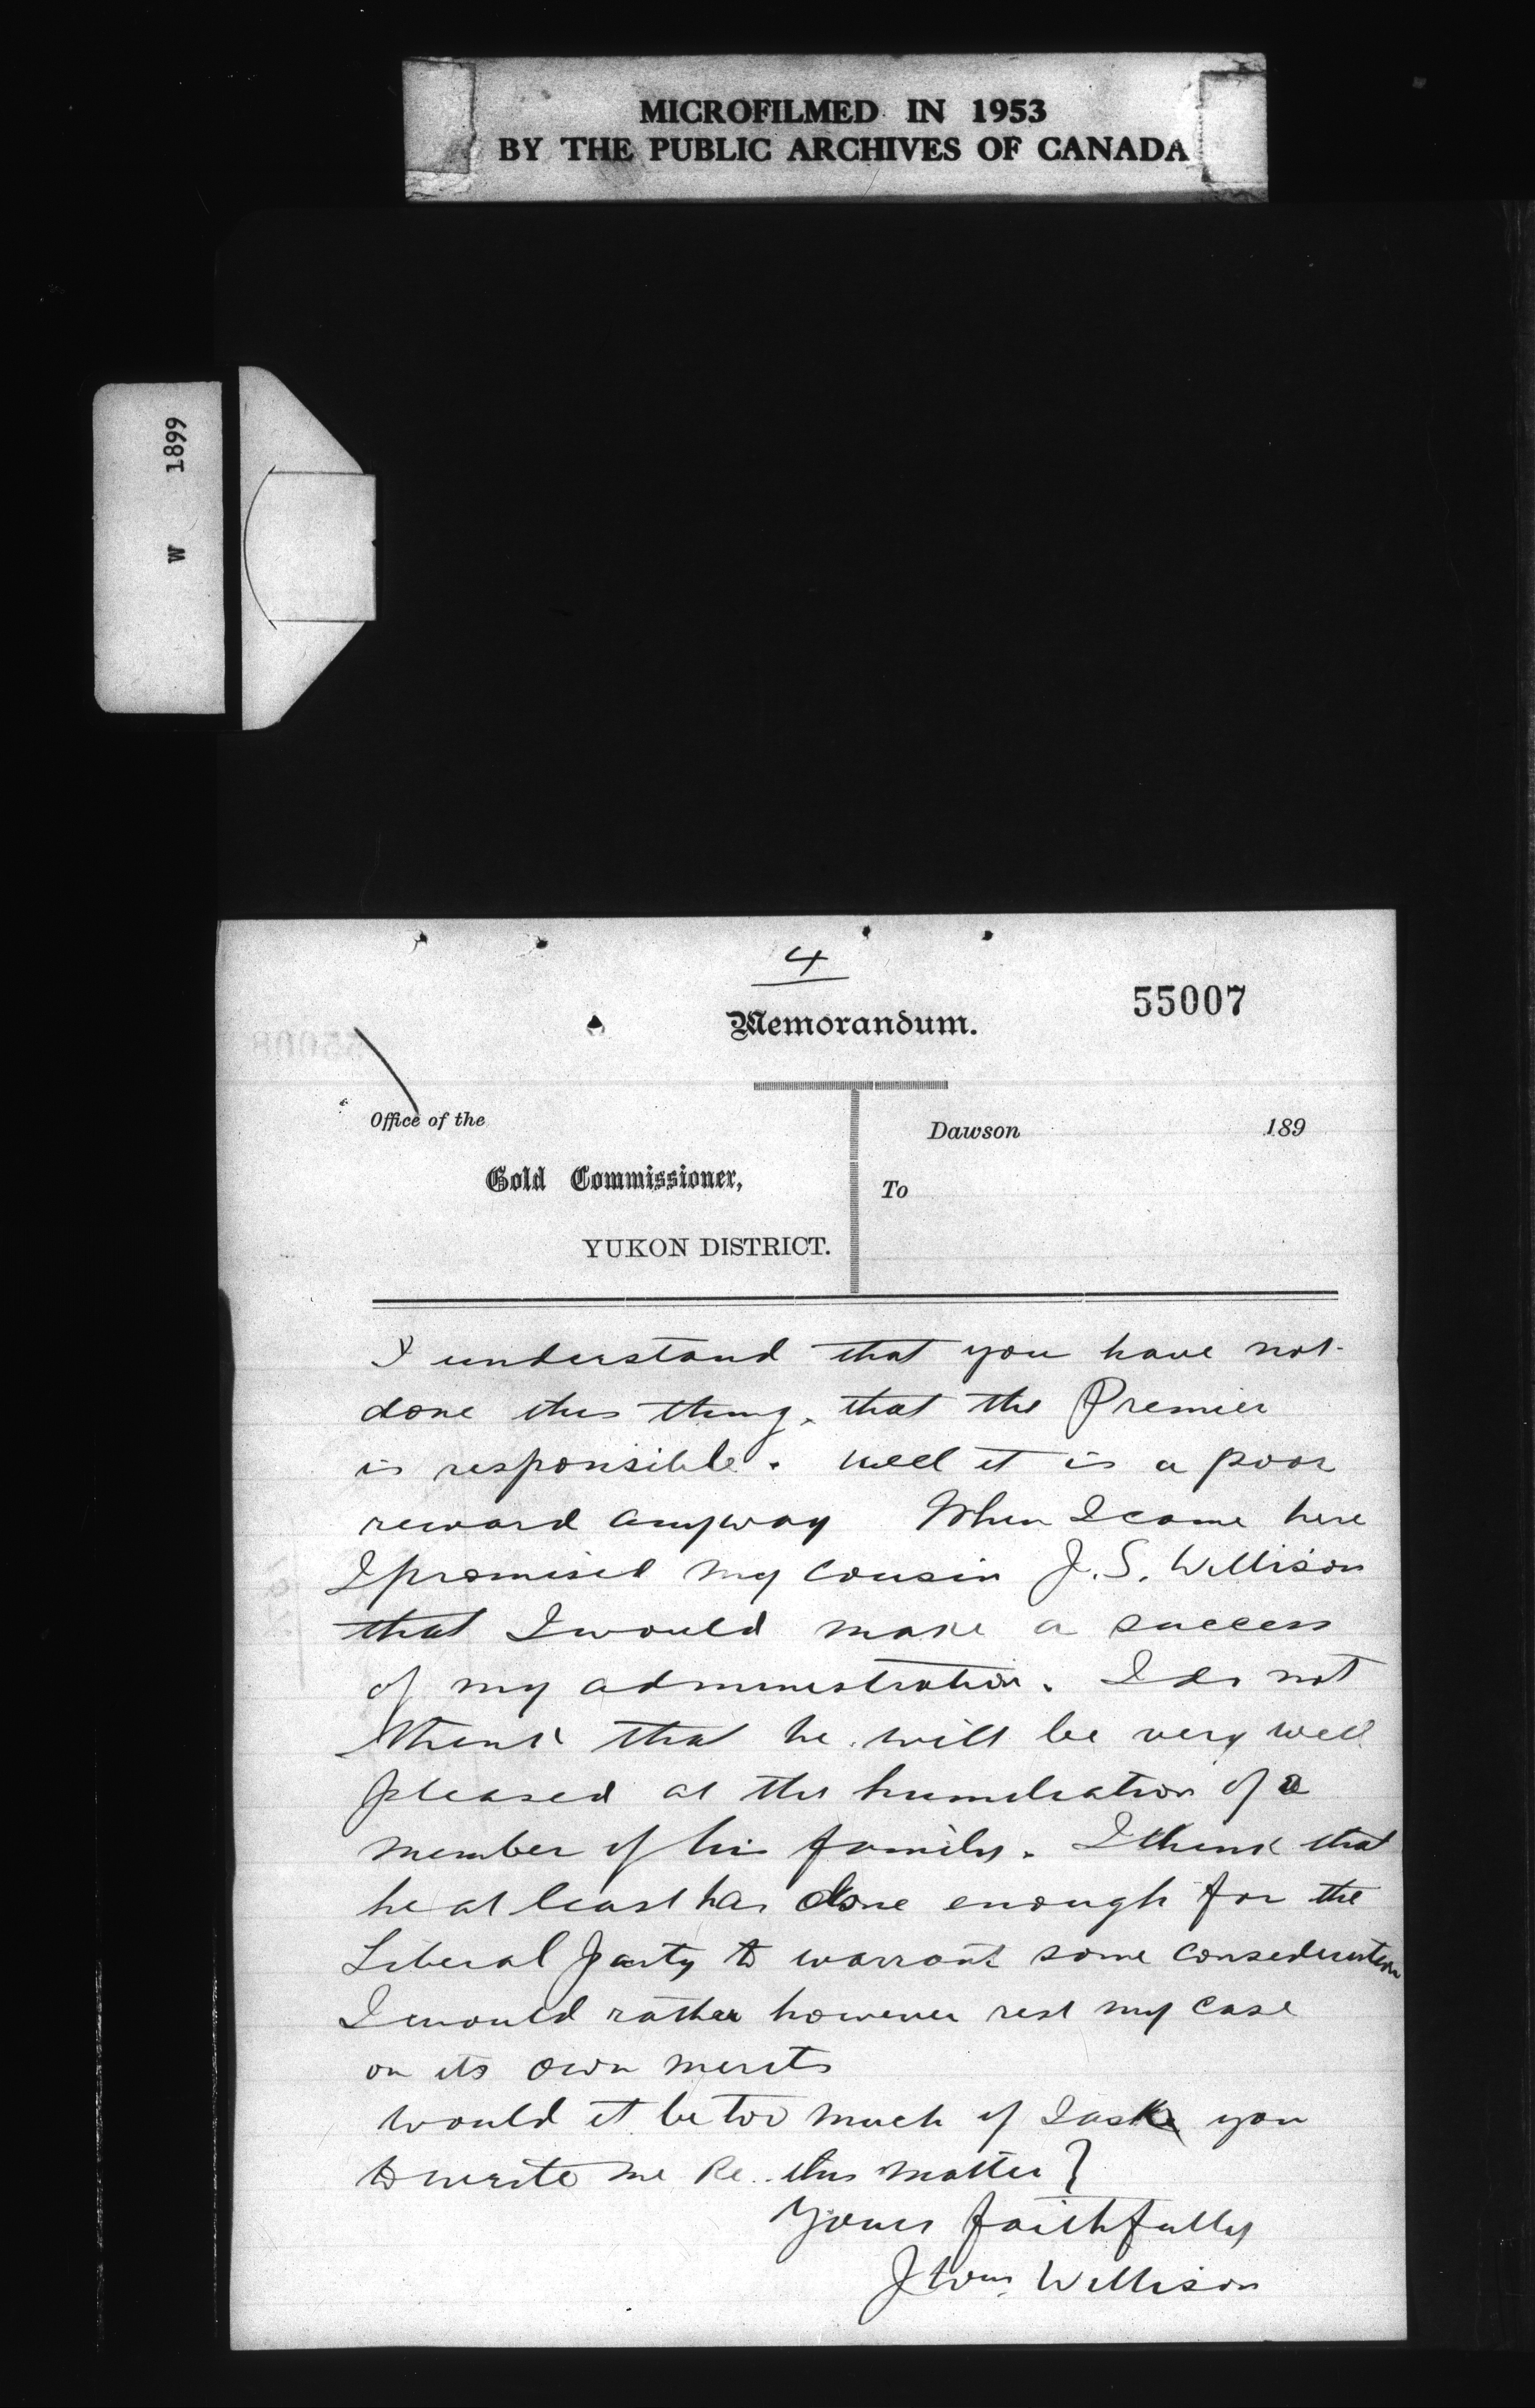 MICROFILMED IN 1953
BY THE PUBLIC ARCHIVES OF CANADA
W 1899
4
55007
Memorandum.
Office of the
Gold Commissioner,
YUKON DISTRICT.
Dawson 189
To
I understand that you have not
done this thing, that the Premier
is responsible. Well it is a poor
reward anyway When I came here
I promised my cousin J. S. Willison
that I would make a success
of my administration. I do not
think that he will be very well
pleased at the humiliation of a
member of his family. I think that
he at least has done enough for the
Liberal party to warrant some consideration
I would rather however rest my case
on its own merits
Would it be too much if I ask you
to write me Re. this matter?
Yours faithfully
J Wm Willison